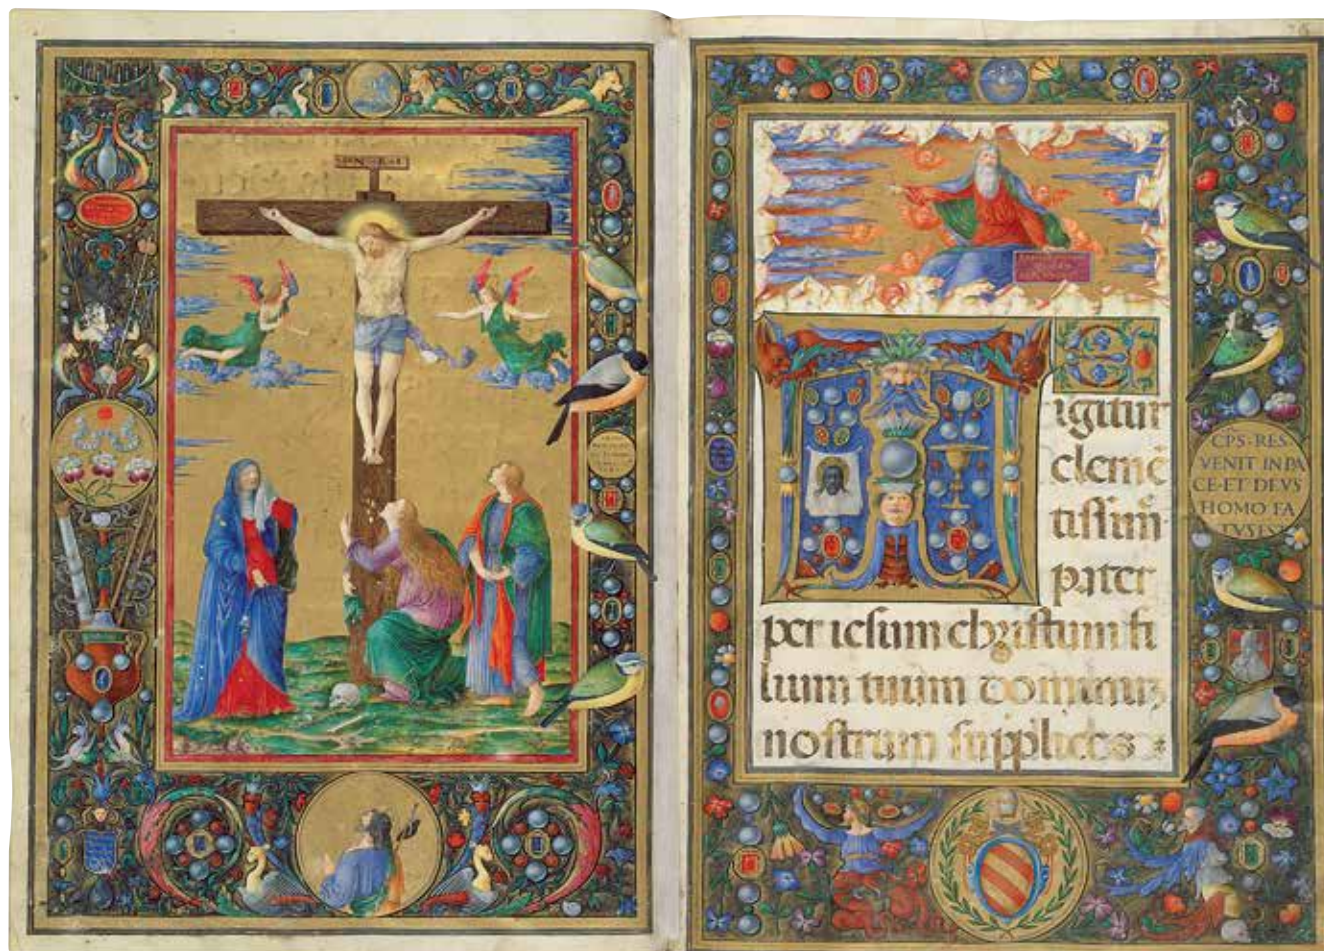 I·N·R·I
TE
igitur
clemē
tissim̄
pater
per iesum christum fi
lium tuum dominum
nostrum supplices :
CP̄S·RES
VENIT IN PA
CE·ET DEVS
HOMO FA
TVS EST